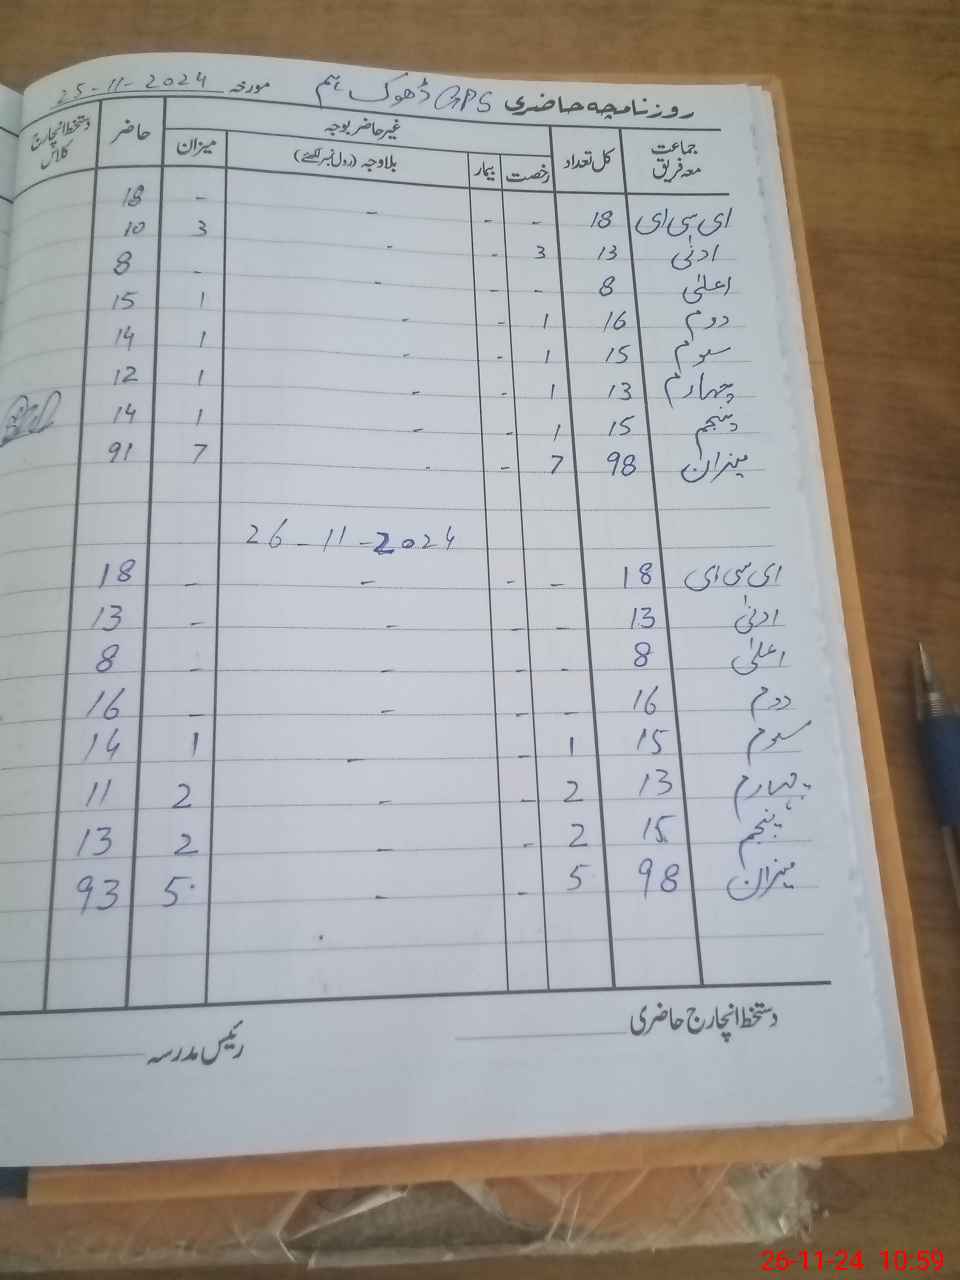 روزنامچہ حاضری GPS ڈھوک ہم مورخہ 25-11-2024
جماعت معہ فریق کل تعداد غیر حاضر بوجہ حاضر دستخط انچارج کلاس
رخصت بیمار بلاوجہ (رول نمبر لکھیئے) میزان
ای سی ای 18 - - - - 18
ادنیٰ 13 3 - - 3 10
اعلیٰ 8 - - - - 8
دوم 16 1 - - 1 15
سوم 15 1 - - 1 14
چہارم 13 1 - - 1 12
پنجم 15 1 - - 1 14
میزان 98 7 - - 7 91
26-11-2024
ای سی ای 18 - - - - 18
ادنیٰ 13 - - - - 13
اعلیٰ 8 - - - - 8
دوم 16 - - - - 16
سوم 15 1 - - 1 14
چہارم 13 2 - - 2 11
پنجم 15 2 - - 2 13
میزان 98 5 - - 5 93
دستخط انچارج حاضری
رئیس مدرسہ
26-11-24 10:59